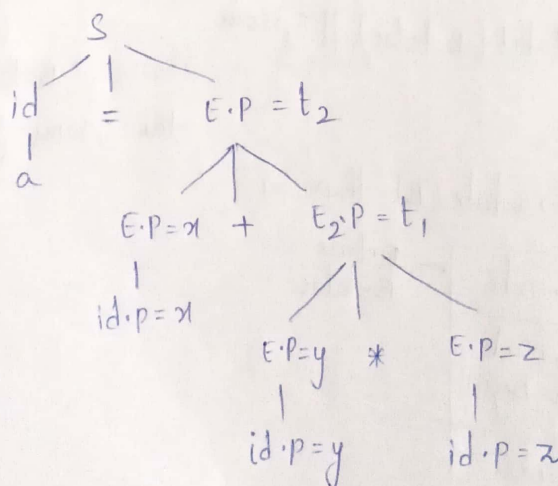 S
id = E.P = t2
a
E.P=x + E2.P = t1
id.p = x
E.P=y * E.P=z
id.p=y id.p=z